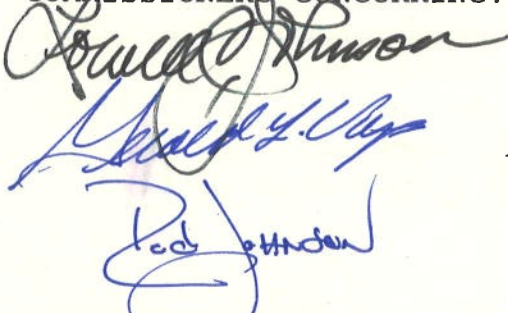 COMMISSIONERS CONCURRING:
Lowell J Johnson
Gerald L. Vap
Rod Johnson